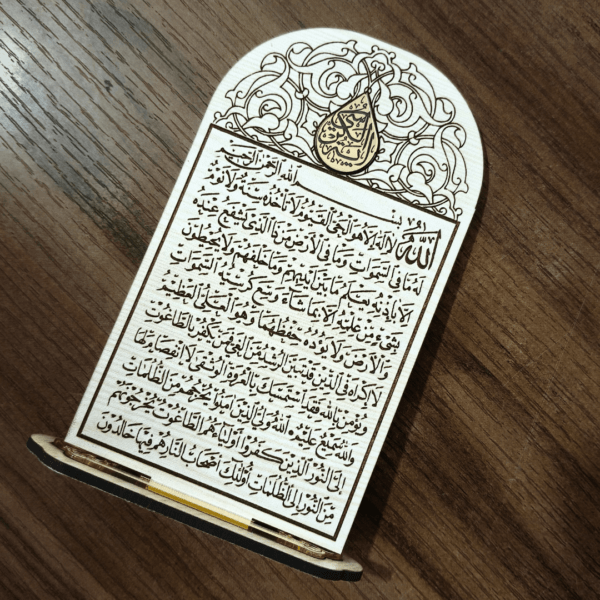 آية الكرسي
بسم الله الرحمن الرحيم
الله لا اله الا هو الحي القيوم لا تأخذه سنة ولا نوم
له ما في السموات وما في الارض من ذا الذي يشفع عنده
الا باذنه يعلم ما بين ايديهم وما خلفهم ولا يحيطون
بشئ من علمه الا بما شاء وسع كرسيه السموات
والارض ولا يؤده حفظهما وهو العلي العظيم
لا اكراه في الدين قد تبين الرشد من الغي فمن يكفر بالطاغوت
ويؤمن بالله فقد استمسك بالعروة الوثقى لا انفصام لها
والله سميع عليم الله ولي الذين آمنوا يخرجهم من الظلمات
الى النور والذين كفروا اولياؤهم الطاغوت يخرجونهم
من النور الى الظلمات اولئك اصحاب النار هم فيها خالدون